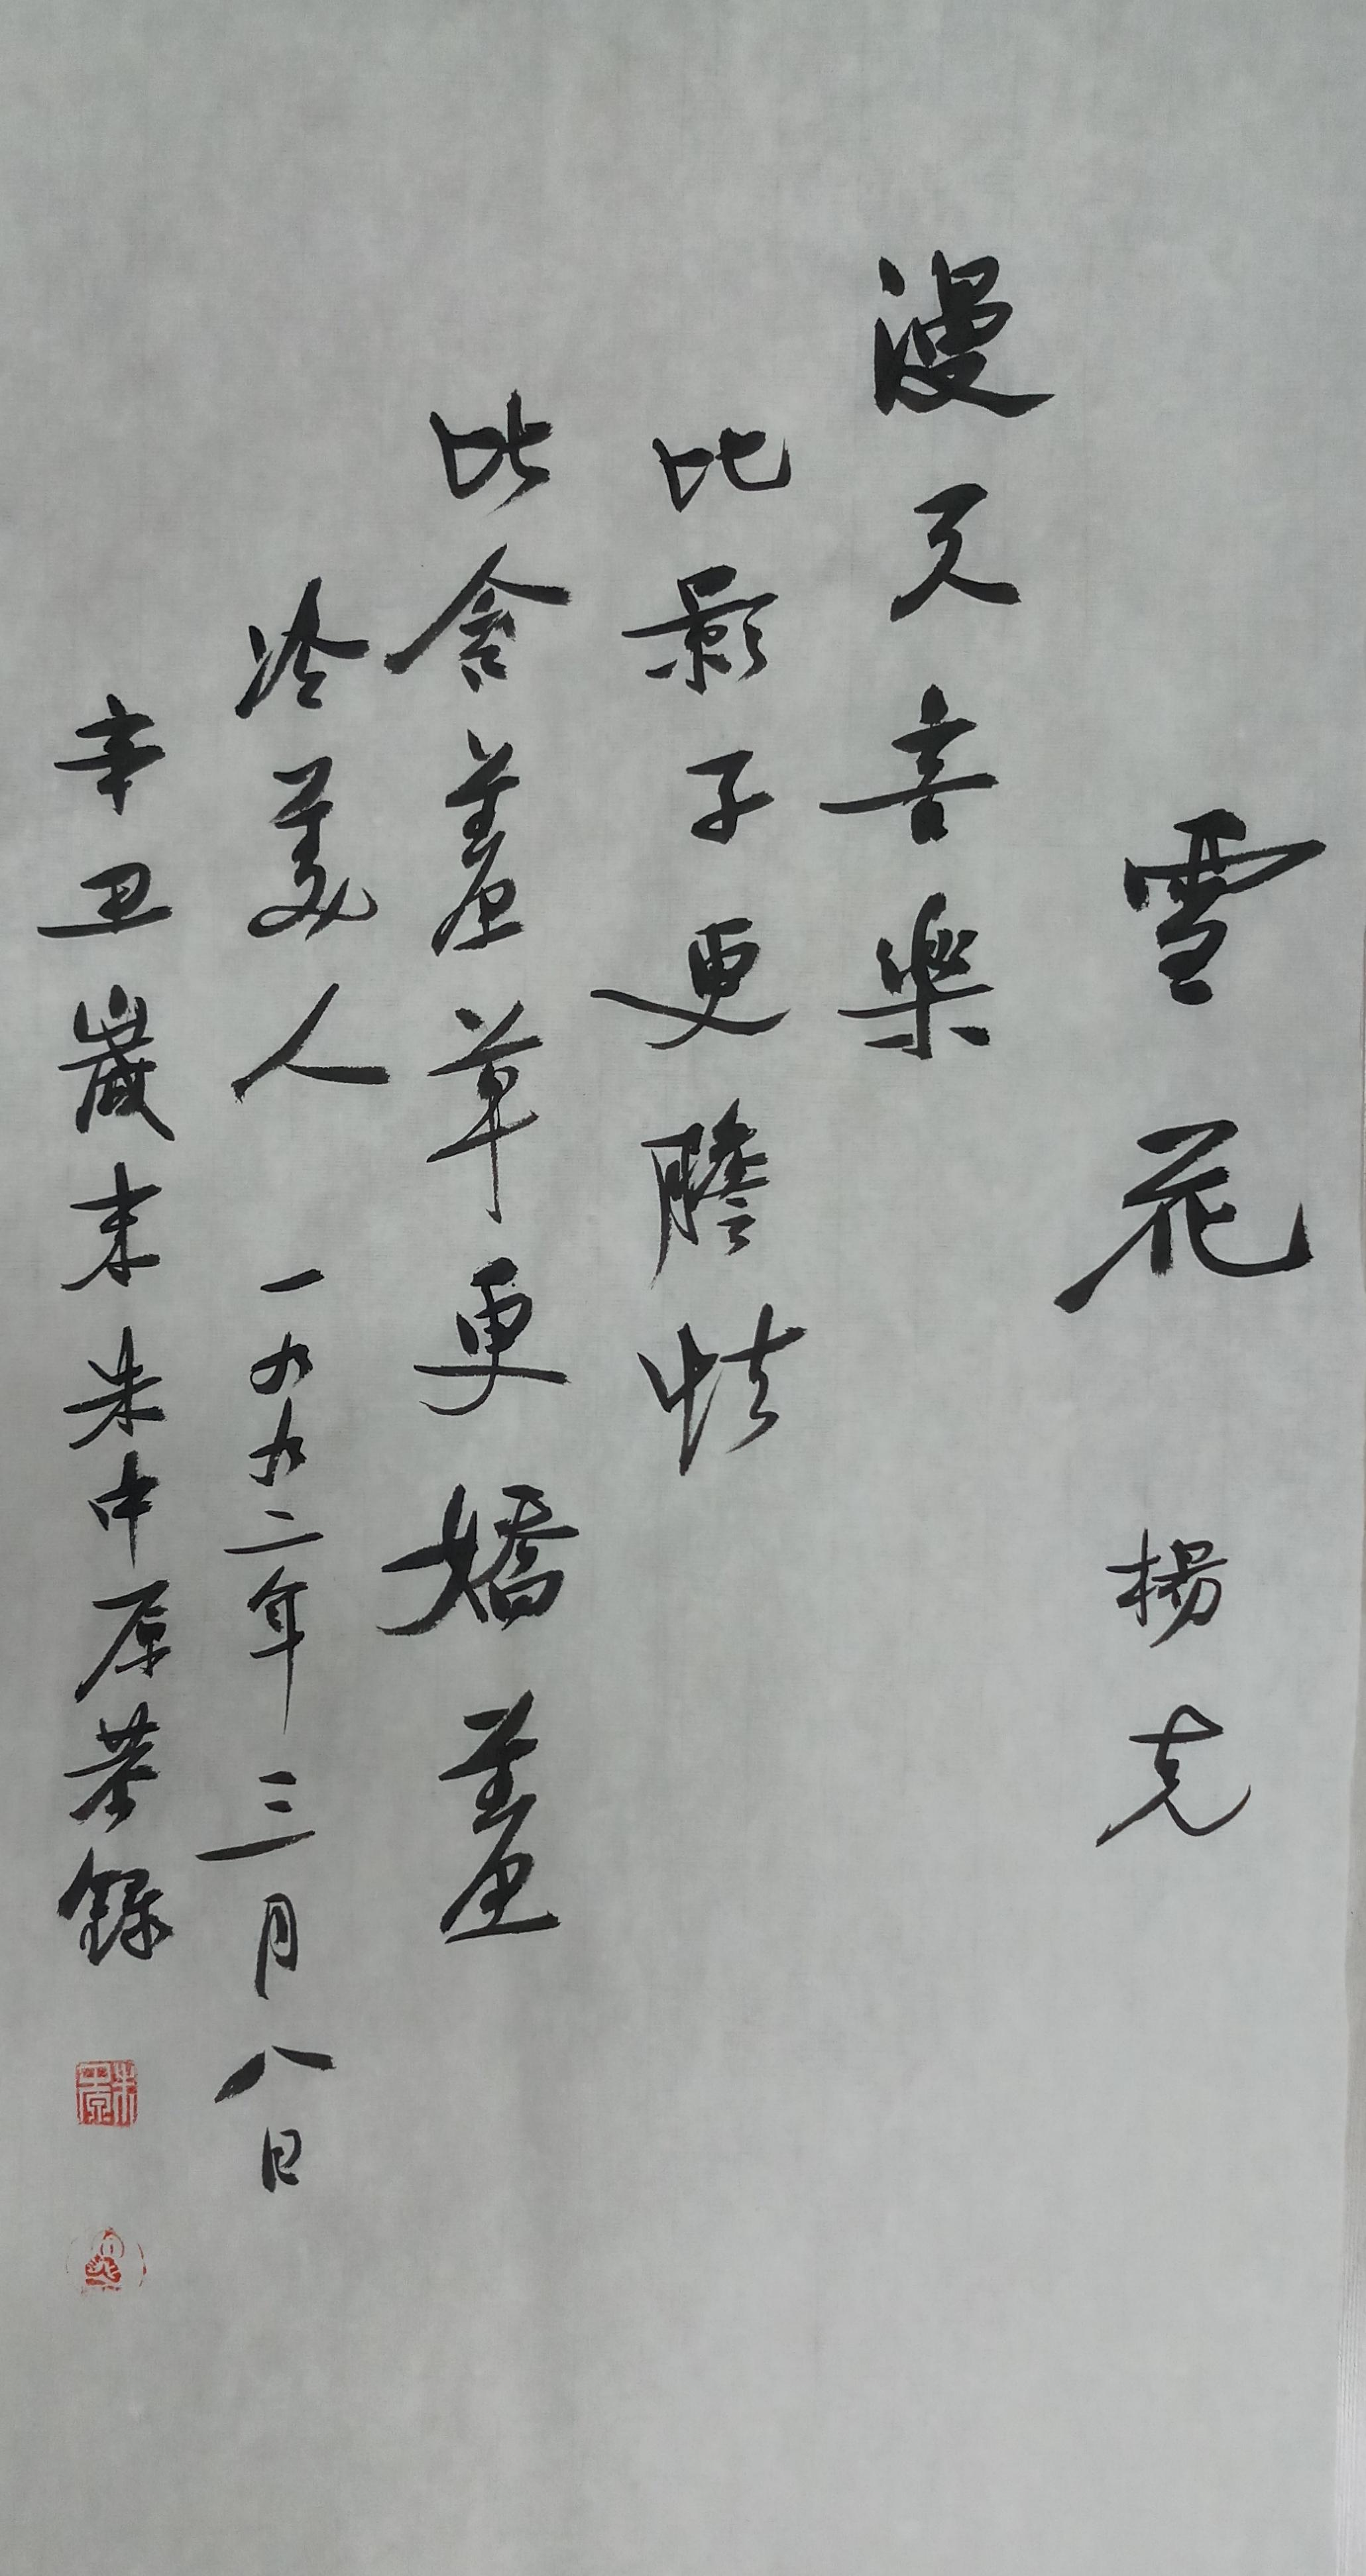 雪花 楊克
漫天音樂
比影子更膽怯
比含羞草更嬌羞
冷美人 一九九二年三月八日
辛丑歲末朱中原恭錄